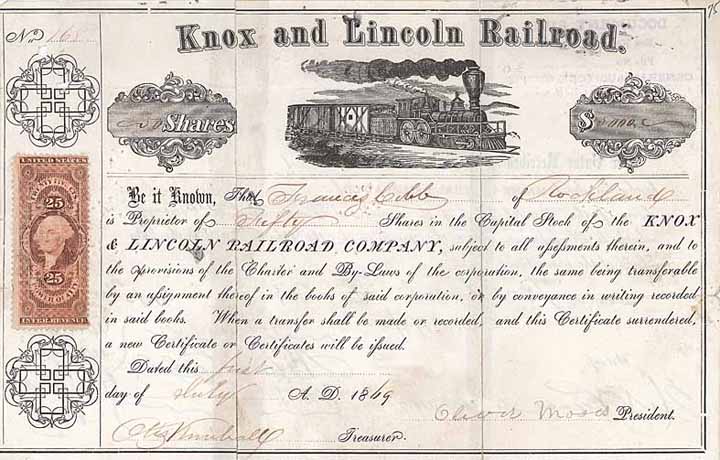 75
No 165
Knox and Lincoln Railroad.
50 Shares
$
UNITED STATES
TWENTY FIVE CTS.
25
25
INTER. REVENUE
Be it Known, That Francis Cobb of Rockland
is Proprietor of Fifty Shares in the Capital Stock of the KNOX
& LINCOLN RAILROAD COMPANY, subject to all aſseſsments therein, and to
the provisions of the Charter and By-Laws of the corporation, the same being transferable
by an aſsignment thereof in the books of said corporation, or by conveyance in writing recorded
in said books. When a transfer shall be made or recorded, and this Certificate surrendered,
a new Certificate or Certificates will be iſsued.
Dated this first
day of July A. D. 1869
Oliver Moses President.
Otis Kimball Treasurer.